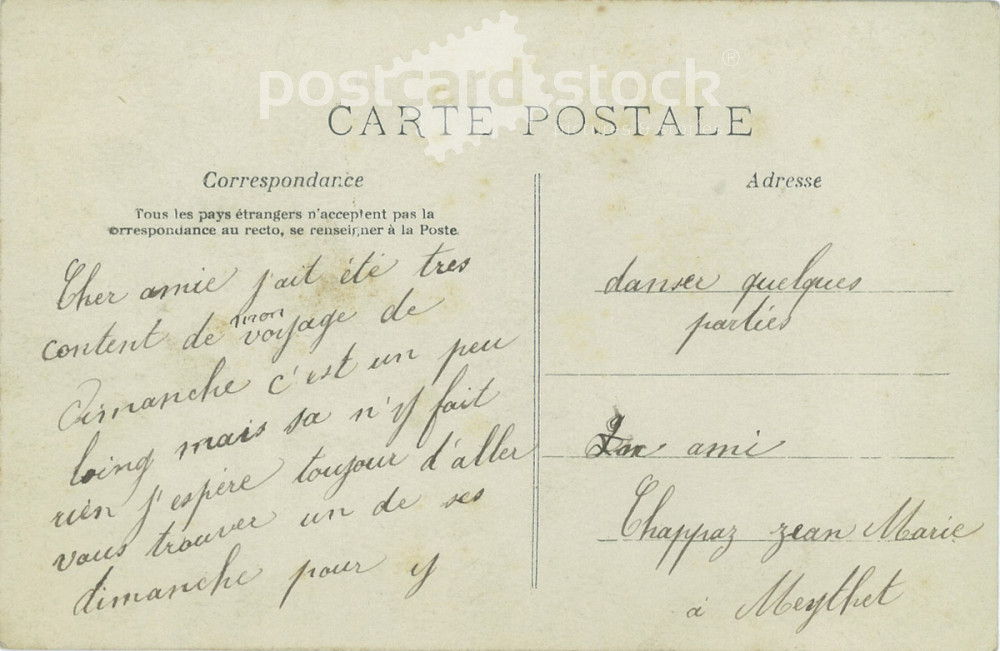 postcard stock®
CARTE POSTALE
Correspondance
Tous les pays étrangers n'acceptent pas la
orrespondance au recto, se renseigner à la Poste
Cher amie j'ait été tres
content de mon voyage de
Dimanche c'est un peu
loing mais sa n'y fait
rien j'espère toujour d'aller
vous trouver un de ses
dimanche pour y
Adresse
danser quelques
parties
ami
Chappaz jean Marie
à Meythet